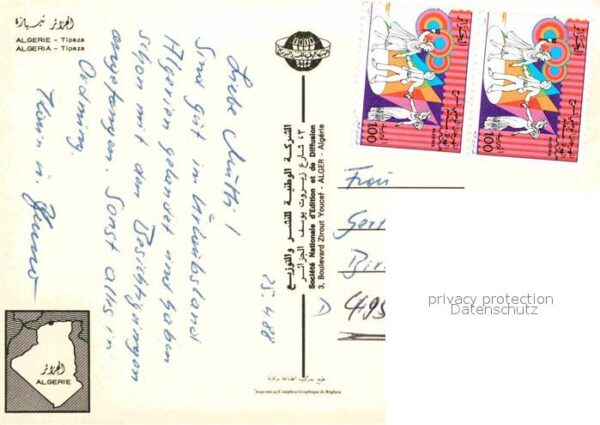 الجزائر تيبازة
ALGERIE - Tipaza
ALGERIA - Tipaza
25.4.88
Liebe Mutti!
Sind gut im Urlaubsland
Algerien gelandet und haben
schon mit den Besichtigungen
angefangen. Sonst alles in
Ordnung.
الشركة الوطنية للنشر والتوزيع
٣، شارع زيروت يوسف الجزائر
Société Nationale d'Edition et de Diffusion
3, Boulevard Zirout Youcef - ALGER - Algérie
Imprimé au Complexe Graphique de Réghaia
100
100
Frau
Gert
Bir
D 495
privacy protection
Datenschutz
الجزائر
ALGERIE